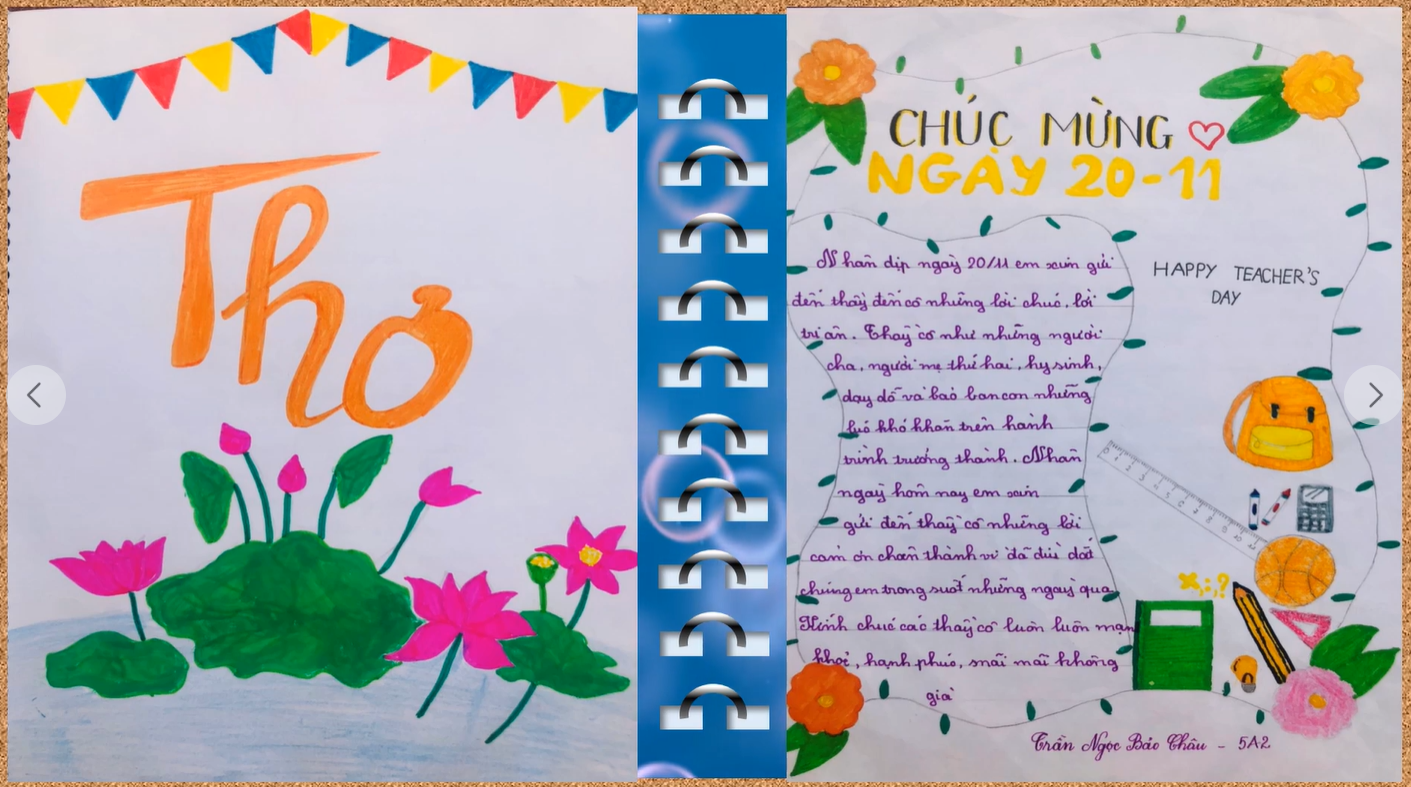 Thơ
CHÚC MỪNG
NGÀY 20-11
Nhân dịp ngày 20/11 em xin gửi
đến thầy đến cô những lời chúc, lời
tri ân. Thầy cô như những người
cha, người mẹ thứ hai, hy sinh,
dạy dỗ và bảo ban con những
lúc khó khăn trên hành
trình trưởng thành. Nhân
ngày hôm nay em xin
gửi đến thầy cô những lời
cảm ơn chân thành vì đã dìu dắt
chúng em trong suốt những ngày qua
Kính chúc các thầy cô luôn luôn mạnh
khoẻ, hạnh phúc, mãi mãi không
già
HAPPY TEACHER'S
DAY
Trần Ngọc Bảo Châu - 5A2